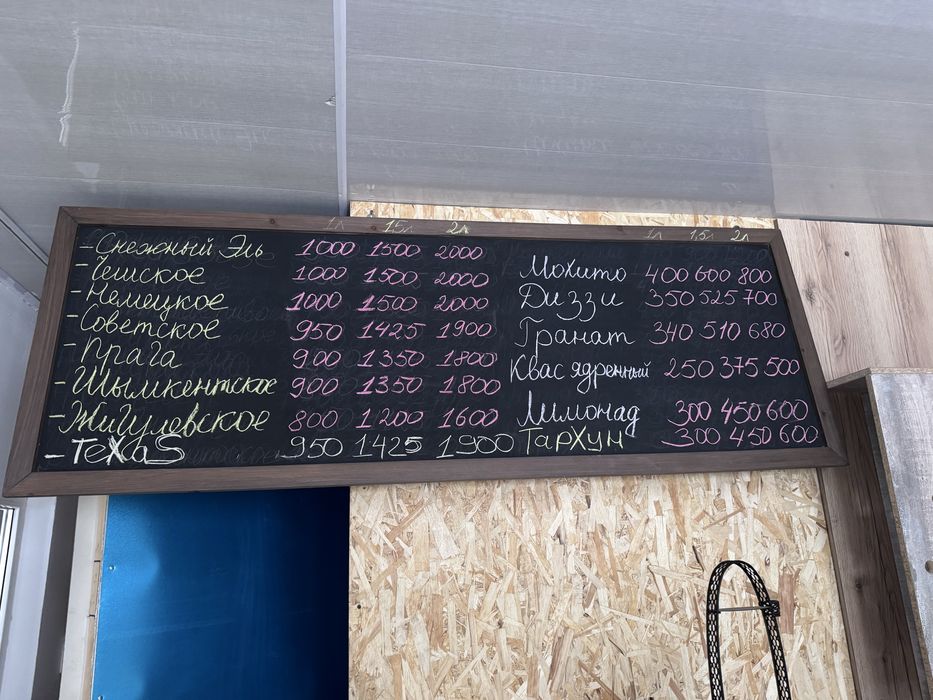 1л 1,5л 2л
- Снежный Эль 1000 1500 2000
- Чешское 1000 1500 2000
- Немецкое 1000 1500 2000
- Советское 950 1425 1900
- Прага 900 1350 1800
- Шымкентское 900 1350 1800
- Жигулевское 800 1200 1600
- TeXaS 950 1425 1900
1л 1,5л 2л
Мохито 400 600 800
Диззи 350 525 700
Гранат 340 510 680
Квас ядренный 250 375 500
Лимонад 300 450 600
Тархун 300 450 600